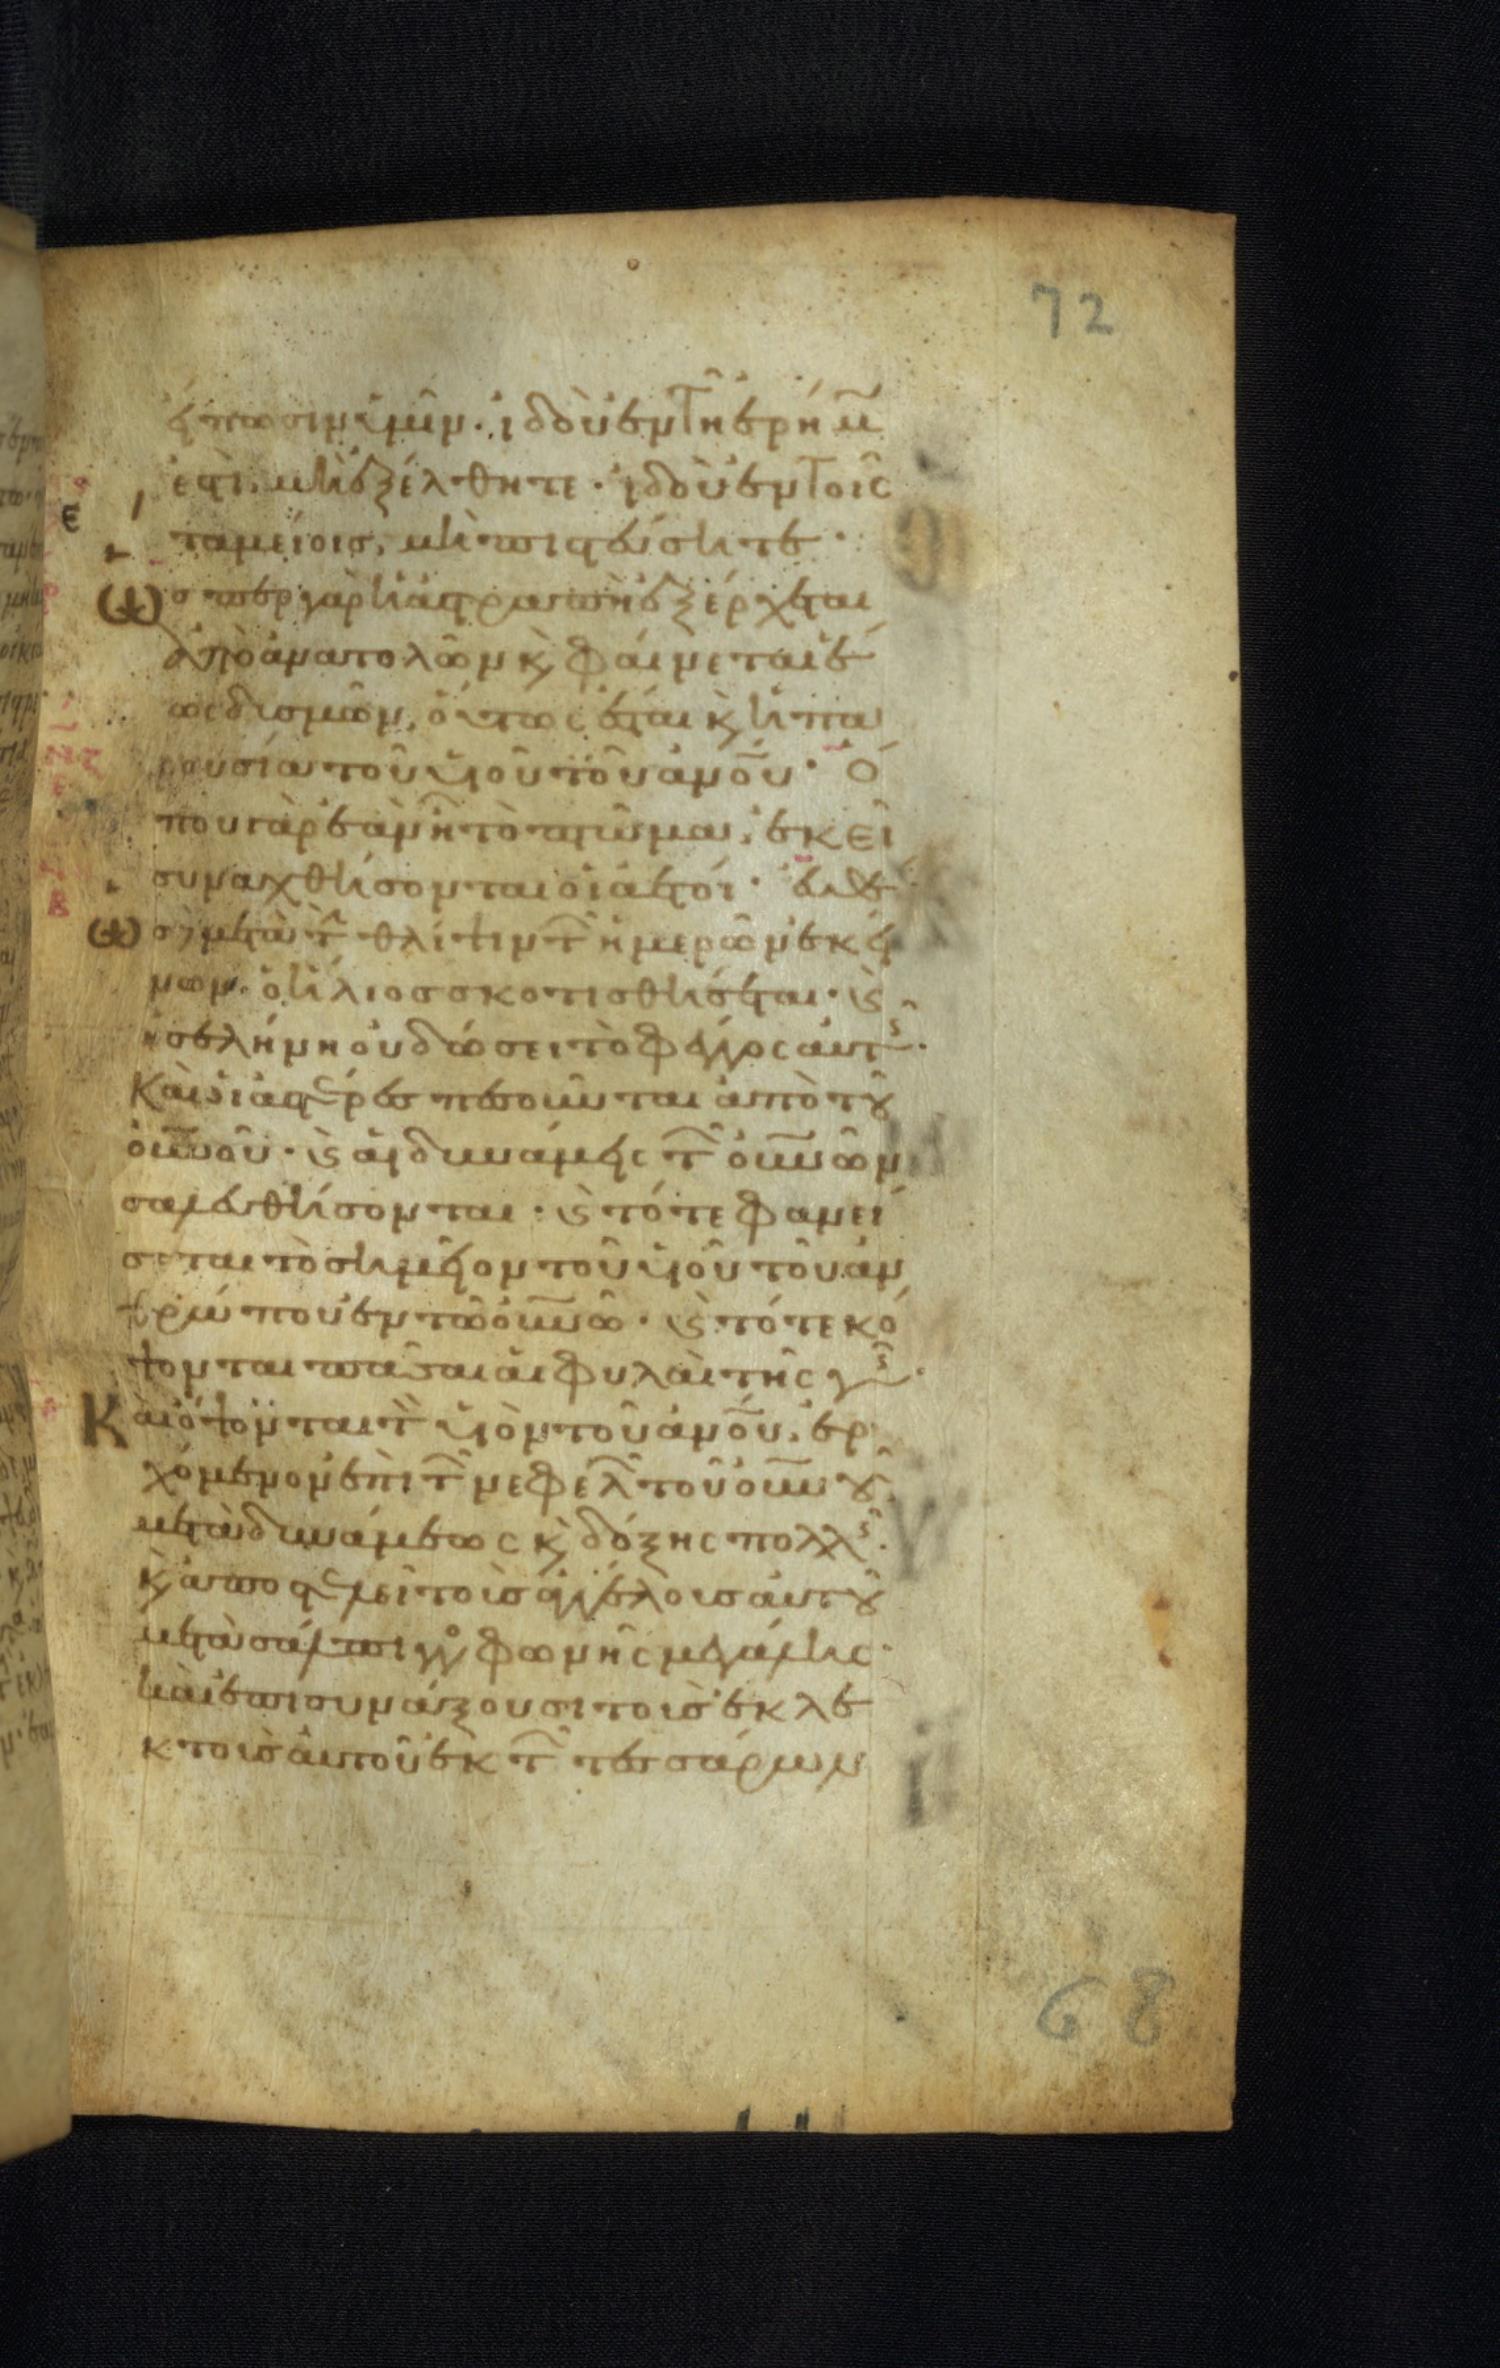 72
είπωσιν ὑμῖν· ἰδοὺ ἐν τῆ ἐρήμ
ἐστὶ, μὴ ἐξέλθητε· ἰδοὺ ἐν τοῖς
ταμείοις, μὴ πιστεύσητε·
ὥσπερ γὰρ ἡ ἀστραπὴ ἐξέρχεται
ἀπὸ ἀνατολῶν κ φαίνεται ἕ
ως δισμῶν, οὕτως ἔσται κ ἡ πα
ρουσία τοῦ υἱοῦ τοῦ ἀνου· Ὅ
που γὰρ ἐὰν ἦ τὸ πτῶμα, ἐκεῖ
συναχθήσονται οἱ ἀετοί· εὐθέ
ως μετὰ τ θλίψιν τ ἡμερῶν ἐκεί
νων. ὁ ἥλιος σκοτισθήσεται· κ
ἡ σελήνη οὐ δώσει τὸ φέγγος αὐτ·
Καὶ οἱ ἀστέρες πεσοῦνται ἀπὸ τοῦ
οὐνοῦ· κ αἱ δυνάμεις τ οὐνῶν
σαλευθήσονται· κ τότε φανεί
σεται τὸ σημεῖον τοῦ υἱοῦ τοῦ ἀν
θρώπου ἐν τῶ οὐνῶ· κ τότε κό
ψονται πᾶσαι αἱ φυλαὶ τῆς γῆς·
Καὶ ὄψονται τ υἱὸν τοῦ ἀνου, ἐρ
χόμενον ἐπὶ τ νεφελ τοῦ οὐνοῦ
μετὰ δυνάμεως κ δόξης πολλῆς·
κ ἀποστελεῖ τοὺς ἀγγέλους αὐτοῦ
μετὰ σάλπιγγο φωνῆς μεγάλης·
καὶ ἐπισυνάξουσι τοὺς ἐκλε
κτοὺς αὐτοῦ ἐκ τ τεσσάρων
68